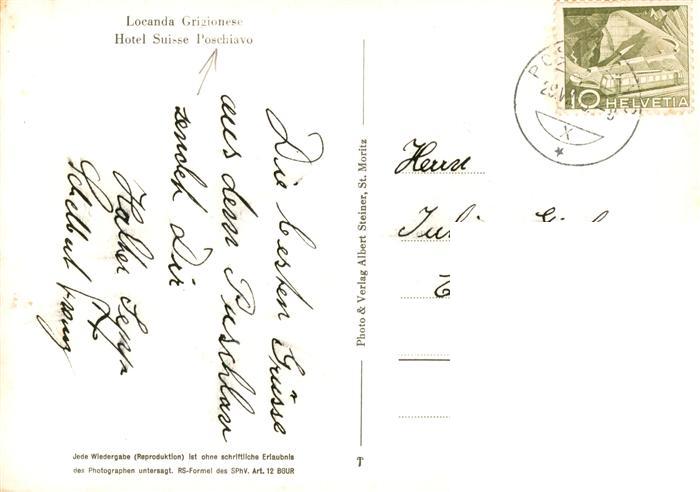 Locanda Grigionese
Hotel Suisse Poschiavo
Die besten Grüsse
aus dem Puschlav
sendet Dir
Halter Sepp
Schelbert Franz
Photo & Verlag Albert Steiner, St. Moritz
Jede Wiedergabe (Reproduktion) ist ohne schriftliche Erlaubnis
des Photographen untersagt. RS-Formel des SPhV. Art. 12 BGUR
10 HELVETIA
X
Herrn